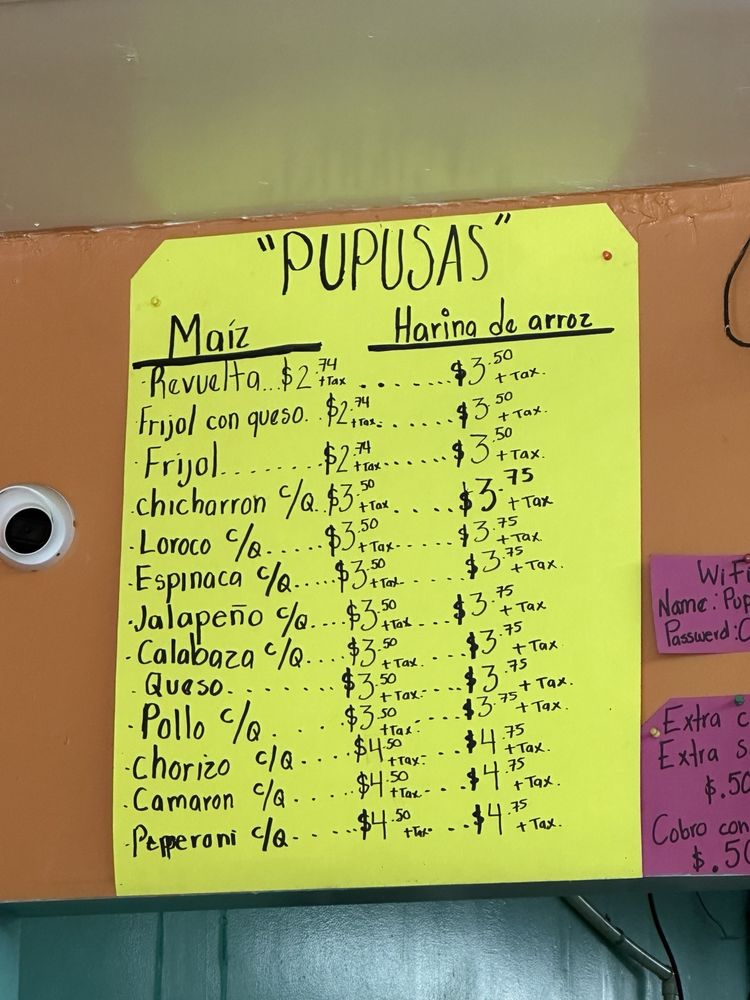 "PUPUSAS"
Maíz Harina de arroz
·Revuelta...$2.74 +Tax.......$3.50 + Tax.
·Frijol con queso..$2.74 +Tax.......$3.50 + Tax.
·Frijol........$2.74 +Tax.......$3.50 + Tax.
·chicharron c/Q.$3.50 +Tax....$3.75 + Tax
·Loroco c/Q.....$3.50 +Tax.....$3.75 + Tax.
·Espinaca c/Q....$3.50 +Tax.....$3.75 + Tax.
·Jalapeño c/Q....$3.50 +Tax....$3.75 + Tax
·Calabaza c/Q....$3.50 +Tax....$3.75 + Tax.
·Queso.......$3.50 +Tax.....$3.75 + Tax.
·Pollo c/Q......$3.50 +Tax.....$3.75 + Tax.
·Chorizo c/Q....$4.50 +Tax...$4.75 + Tax.
·Camaron c/Q....$4.50 +Tax...$4.75 + Tax.
·Pepperoni c/Q.....$4.50 +Tax...$4.75 + Tax.
WiFi
Name: Pup
Password:
Extra
Extra
$.50
Cobro con
$.50